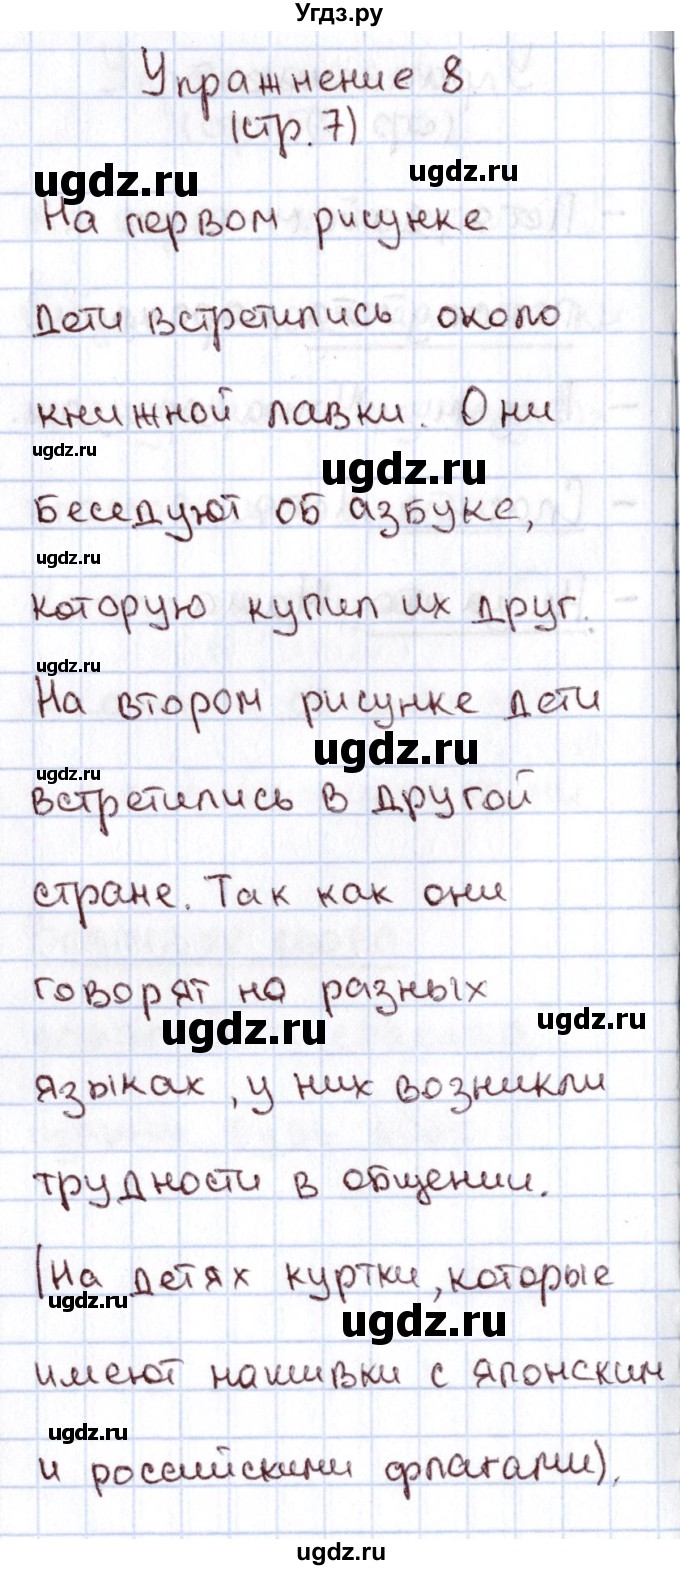 Угдз.ру
Упражнение 8
(стр. 7)
ugdz.ru ugdz.ru
На первом рисунке
дети встретились около
книжной лавки. Они
ugdz.ru ugdz.ru
беседуют об азбуке,
ugdz.ru
которую купил их друг.
ugdz.ru
На втором рисунке дети
ugdz.ru
ugdz.ru
встретились в другой
стране. Так как они
говорят на разных
ugdz.ru ugdz.ru
языках, у них возникли
трудности в общении.
(На детях куртки, которые
ugdz.ru ugdz.ru
имеют нашивки с японским
ugdz.ru
и российскими флагами).
ugdz.ru